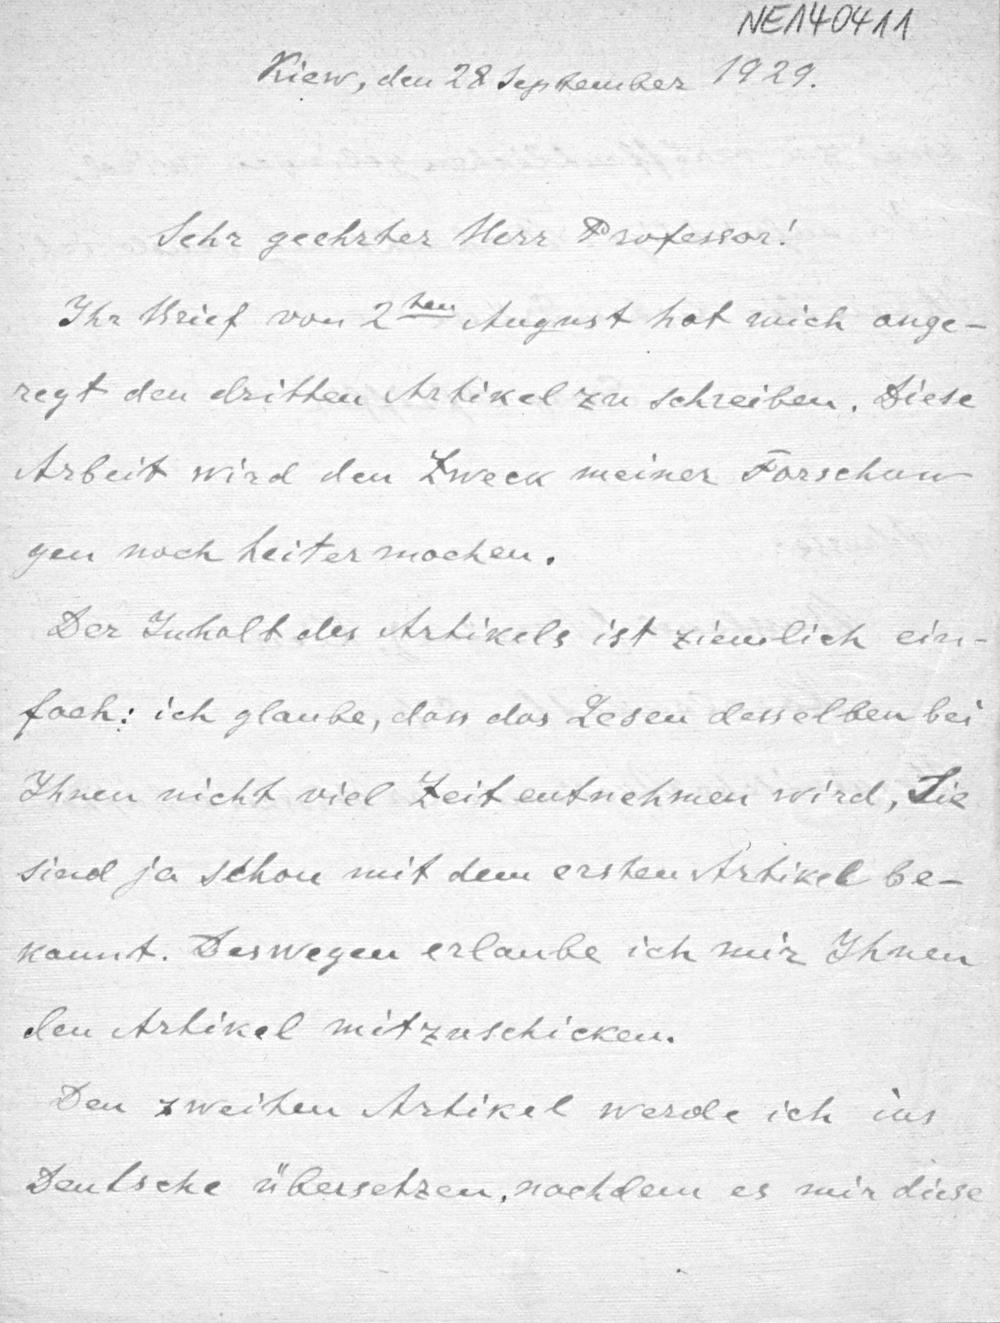 NE140411
Kiew, den 28 September 1929.
Sehr geehrter Herr Professor!
Ihr Brief von 2ten August hat mich ange-
regt den dritten Artikel zu schreiben. Diese
Arbeit wird den Zweck meiner Forschun
gen noch heiter machen.
Der Inhalt des Artikels ist ziemlich ein-
fach: ich glaube, dass das Lesen desselben bei
Ihnen nicht viel Zeit entnehmen wird, Sie
sind ja schon mit dem ersten Artikel be-
kannt. Deswegen erlaube ich mir Ihnen
den Artikel mitzuschicken.
Den zweiten Artikel werde ich ins
Deutsche übersetzen, nachdem es mir diese